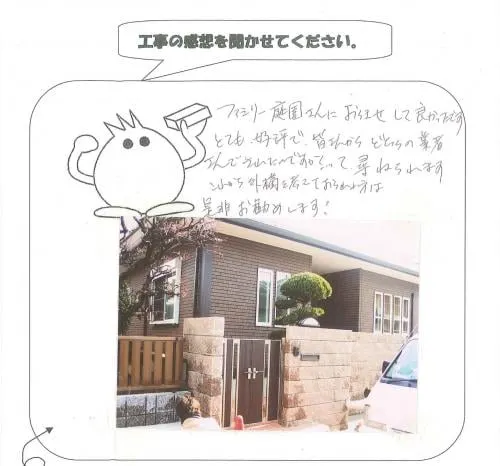 工事の感想を聞かせてください。
ファミリー庭園さんにお任せして良かったです
とても好評で、皆さんから どちらの業者
さんでされたのですか?って 尋ねられます
これから外構を考えておられる方は
是非お勧めします!